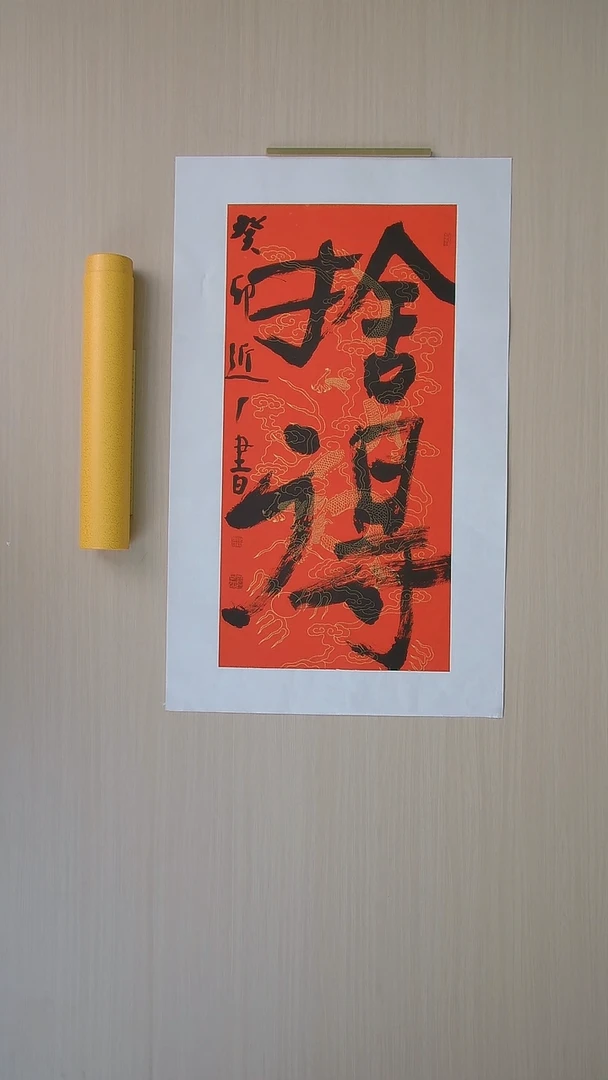 捨得
癸卯近人書